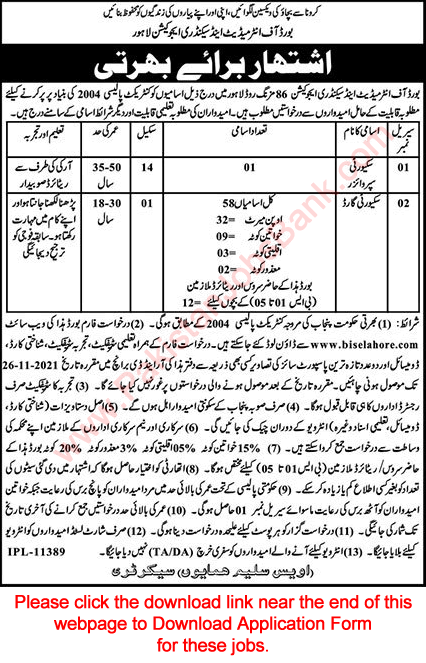 کرونا سے بچاؤ کی ویکسین لگوائیں، اپنی اور اپنے پیاروں کی زندگیوں کو محفوظ بنائیں
بورڈ آف انٹرمیڈیٹ اینڈ سیکنڈری ایجوکیشن لاہور
اشتہار برائے بھرتی
بورڈ آف انٹرمیڈیٹ اینڈ سیکنڈری ایجوکیشن 86 مزنگ روڈ لاہور میں درج ذیل اسامیوں کو کنٹریکٹ پالیسی 2004 کی بنیاد پر پر کرنے کیلئے
مطلوبہ قابلیت کے حامل امیدواروں سے درخواستیں مطلوب ہیں۔ امیدواران کی مطلوبہ تعلیمی قابلیت اور دیگر شرائط اسامی کے سامنے درج ہیں۔
سیریل نمبر اسامی کا نام تعداد اسامی سکیل عمر کی حد تعلیم اور تجربہ
01 سکیورٹی سپروائزر 01 14 35-50 سال آرمی کی طرف سے ریٹائرڈ صوبیدار
02 سکیورٹی گارڈ کل اسامیاں 58 01 18-30 سال پڑھنا لکھنا جانتا ہو اور اپنے کام میں مہارت رکھتا ہو۔ سابقہ فوجی کو ترجیح دی جائیگی
اوپن میرٹ =32
خواتین کوٹہ =09
اقلیتی کوٹہ =03
معذور کوٹہ =02
بورڈ ہذا کے حاضر سروس اور ریٹائرڈ ملازمین
(بی ایس 01 تا 05) کے بچوں کیلئے =12
شرائط: (1) بھرتی حکومت پنجاب کی مروجہ کنٹریکٹ پالیسی 2004 کے مطابق ہو گی۔ (2) درخواست فارم بورڈ ہذا کی ویب سائٹ
www.biselahore.com سے ڈاؤن لوڈ کئے جا سکتے ہیں۔ درخواست فارم کے ہمراہ تعلیمی سرٹیفکیٹ، تجربہ سرٹیفکیٹ، شناختی کارڈ،
ڈومیسائل اور دو عدد تازہ ترین پاسپورٹ سائز کی تصاویر کسی بھی ذریعہ سے دفتر ہذا کی آر اینڈ ڈی برانچ میں مقررہ تاریخ 26-11-2021
تک موصول ہونی چاہئیں۔ مقررہ تاریخ کے بعد موصول ہونے والی درخواستوں پر غور نہیں کیا جائے گا۔ (3) تجربہ کا سرٹیفکیٹ صرف
رجسٹرڈ اداروں کا ہی قابل قبول ہوگا۔ (4) صرف صوبہ پنجاب کے سکونتی امیدوار اہل ہوں گے۔ (5) اصل دستاویزات (شناختی کارڈ،
ڈومیسائل، تعلیمی اسناد وغیرہ) انٹرویو کے دوران چیک کی جائیں گی۔ (6) سرکاری اور نیم سرکاری اداروں کے ملازمین اپنے محکمہ کی
وساطت سے درخواست جمع کروا سکتے ہیں۔ (7) 15% خواتین کوٹہ 05% اقلیتی کوٹہ 3% معذور کوٹہ 20% کوٹہ بورڈ ہذا کے
حاضر سروس/ ریٹائرڈ ملازمین (بی ایس 01 تا 05) کیلئے مختص ہوگا۔ (8) اتھارٹی کو اختیار حاصل ہوگا کہ اشتہار میں دی گئی سیٹوں کی
تعداد کو بغیر کسی اطلاع کم یا زیادہ کر سکے۔ (9) حکومتی پالیسی کے تحت عمر کی بالائی حد میں مرد امیدواران کو پانچ برس کی رعایت جبکہ خواتین
امیدواران کو آٹھ برس کی رعایت ماسوائے سیریل نمبر 01 حاصل ہوگی۔ (10) عمر کی بالائی حد درخواستیں جمع کرانے کی آخری تاریخ
تک شمار کی جائیگی۔ (11) درخواست گزار کو ہر پوسٹ کیلئے علیحدہ درخواست دینا ہوگی۔ (12) صرف شارٹ لسٹڈ امیدواروں کو انٹرویو
کیلئے بلایا جائیگا۔ (13) انٹرویو کیلئے آنے والے امیدواروں کو سفری خرچ (TA/DA) نہیں دیا جائیگا۔ IPL-11389
(اویس سلیم ہمایوں) سیکرٹری
Please click the download link near the end of this
webpage to Download Application Form
for these jobs.